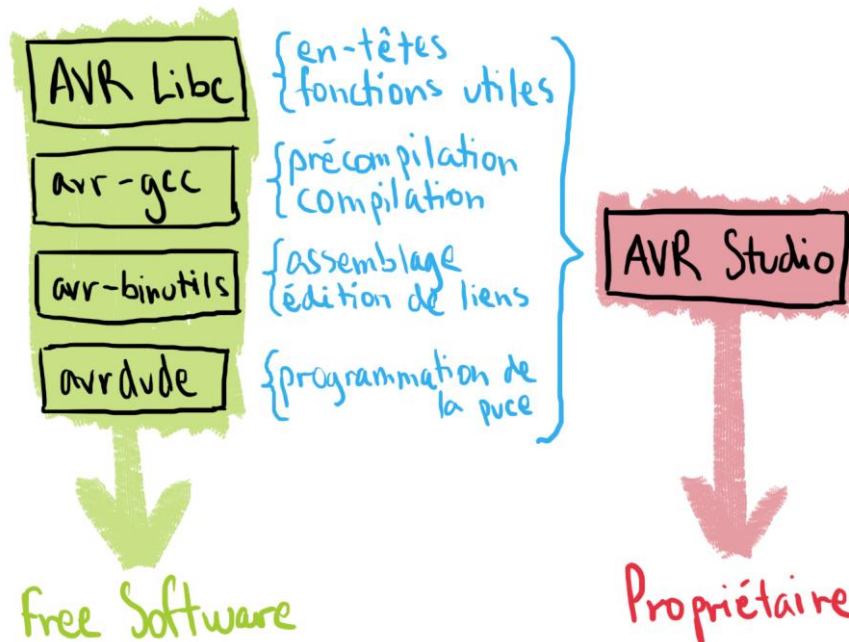 AVR Libc
en-têtes
fonctions utiles
avr-gcc
précompilation
compilation
avr-binutils
assemblage
édition de liens
avrdude
programmation de
la puce
AVR Studio
Free Software
Propriétaire